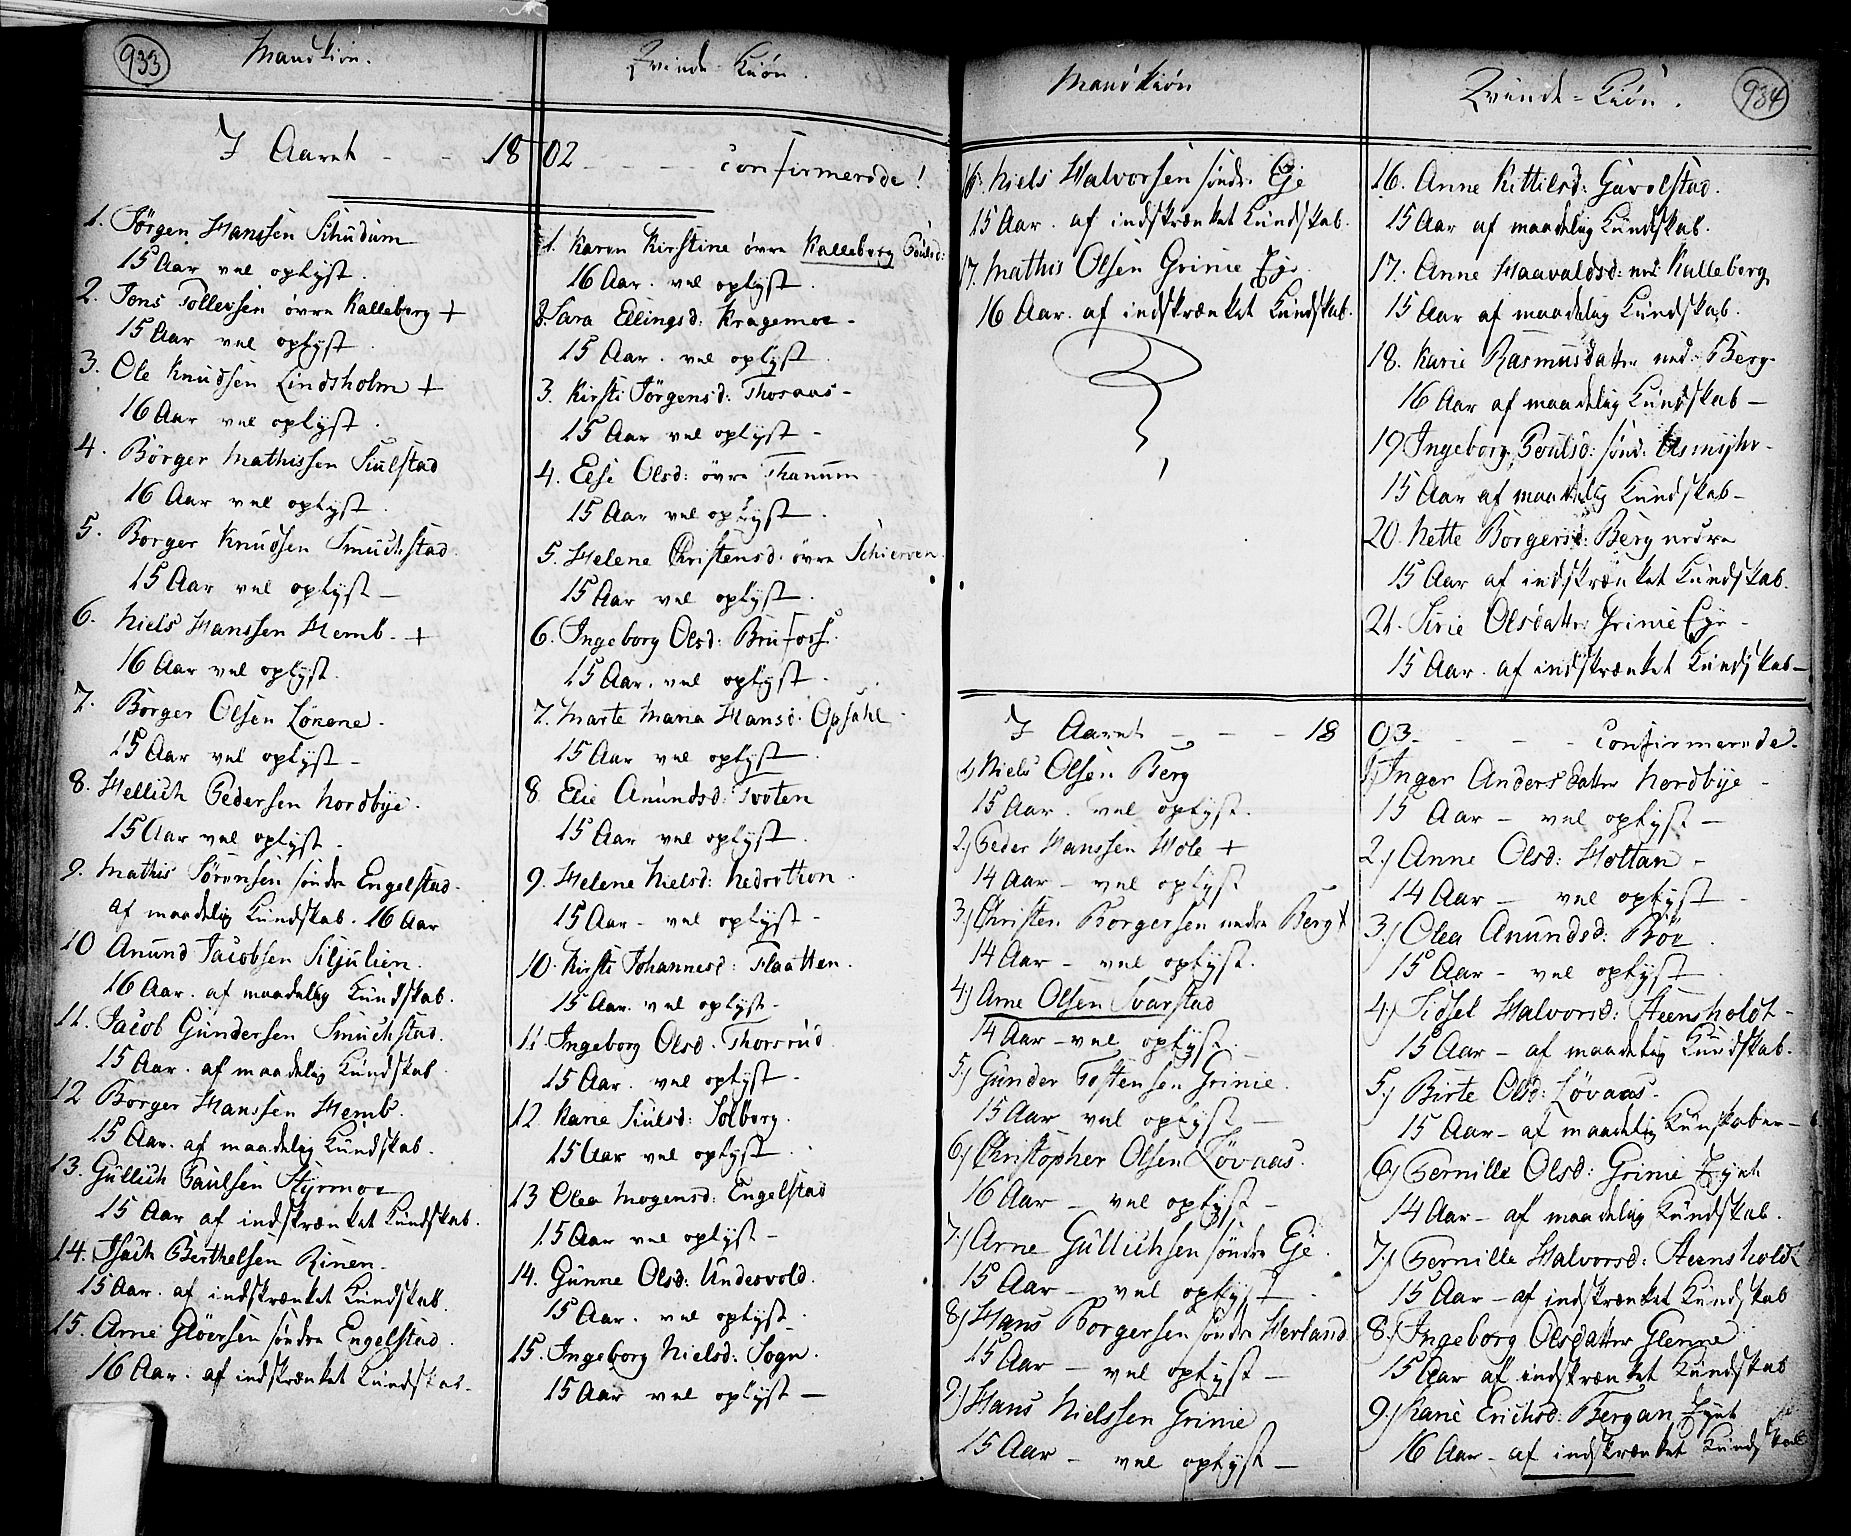 933
Mandkiøn.
Qvinde-Kiøn.
I Aaret - - 1802 - - - confirmerede!
1. Jørgen Hanssen Schudum
15 Aar vel oplyst.
2. Jens Tollefsen övre Kalleberg +
15 Aar vel oplyst.
3. Ole Knudsen Lindsholm +
16 Aar vel oplyst.
4. Börger Mathissen Siulstad
16 Aar vel oplyst.
5. Borger Knudsen Smuchstad.
15 Aar vel oplyst -
6. Niels Hanssen Hemb. +
16 Aar vel oplyst.
7. Börger Olsen Lönene.
15 Aar vel oplyst -
8. Hellich Pedersen Nordbye.
15 Aar vel oplyst -
9. Mathis Sörensen søndre Engelstad.
af maadelig Kundskab. 16 Aar
10 Anund Jacobsen Siljulien.
16 Aar. af maadelig Kundskab.
11. Jacob Gundersen Smuchstad.
15 Aar. af maadelig Kundskab
12 Borger Hanssen Hemb.
15 Aar. af maadelig Kundskab.
13. Gullich Paulsen Styrmoe
15 Aar af indskrænket Kundskab.
14. Isach Berthelsen Rinen.
15 Aar. af indskrænket Kundskab.
15. Arne Glöersen søndre Engelstad.
16 Aar. af indskrænket Kundskab.
1. Karen Kirstine øvre Kalleberg Poulsd:
16 Aar. vel oplyst.
2. Sara Ellingsd: Kragemoe -
15 Aar. vel oplyst.
3. Kirsti Jørgensd: Thoraas -
15 Aar vel oplyst -
4. Else Olsd: övre Thanum
15 Aar vel oplyst.
5. Helene Christensd. övre Schierven.
15 Aar vel oplyst.
6. Ingeborg Olsd: Brufoss.
15 Aar. vel oplyst -
7. Marte Maria Hansd. Opsahl.
15 Aar vel oplyst.
8 Elie Anundsd: Tvoten
15 Aar vel oplyst.
9. Helene Nielsd: Nedrethon.
15 Aar. vel oplyst -
10. Kirsti Johannesd: Flaatten.
15 Aar. vel oplyst -
11 Ingeborg Olsd. Thorsrud.
15 Aar. vel oplyst -
12 Karie Siulsd: Solberg.
15 Aar vel oplyst.
13 Olea Mogensd: Engelstad
15 Aar vel oplyst -
14. Gunne Olsd: Undesvold.
15 Aar. vel oplyst.
15. Ingeborg Nielsd: Sogn.
15 Aar vel oplyst -
Mandkiøn
Qvinde-Kiøn.
934
16. Niels Halvorsen søndre Eje
15 Aar. af indskrænket Kundskab.
17. Mathis Olsen Grinie Eje.
16 Aar. af indskrænket Kundskab.
16. Anne Kittilsd: Gavelstad.
15 Aar af maadelig Kundskab.
17. Anne Haavaldsd: ned: Kalleberg
15 Aar af maadelig Kundskab.
18. Karie Rasmusdatter ned: Berg.
16 Aar af maadelig Kundskab -
19 Ingeborg Poulsd: sönd: Asmyhr -
15 Aar af maadelig Kundskab -
20. Nette Börgersd: Berg nedre
15 Aar af indskrænket Kundskab.
21. Sirie Olsdatter: Grinie Eje -
15 Aar. af indskrænket Kundskab -
I Aaret - - - 1803 - - - confirmerede.
1) Niels Olsen Berg
15 Aar. vel oplyst.
2.) Peder Hanssen Hole +
14 Aar - vel oplyst
3.) Christen Borgersen nedre Berg +
14 Aar - vel oplyst.
4) Arne Olsen Svarstad
14 Aar - vel oplyst.
5.) Gunder Tostensen Grinie.
15 Aar vel oplyst -
6) Christopher Olsen Løvaas.
16 Aar - vel oplyst -
7.) Arne Gullichsen søndre Eje.
15 Aar - vel oplyst.
8) Hans Borgersen søndre Herland
15 Aar - vel oplyst -
9) Hans Nielssen Grinie
15 Aar - vel oplyst -
1) Inger Andersdatter Nordbye -
15 Aar - vel oplyst -
2.) Anne Olsd: Holtan -
14 Aar - vel oplyst -
3.) Olea Anundsd: Böe.
15 Aar - vel oplyst.
4.) Sidsel Halvorsd: Steensholdt -
15 Aar - af maadelig Kundskab.
5.) Birte Olsd: Løvaas.
15 Aar - af maadelig Kunskaber -
6) Pernille Olsd: Grinie Ejet
14 Aar - af maadelig Kundskab.
7.) Pernille Halvorsd: Steensholdt
15 Aar - af indskrænket Kundskab
8.) Ingeborg Olsdatter Glenne
15 Aar af indskrænket Kundskab
9.) Karie Erichsd: Bergan Ejet
16 Aar - af indskrænket Kundskab